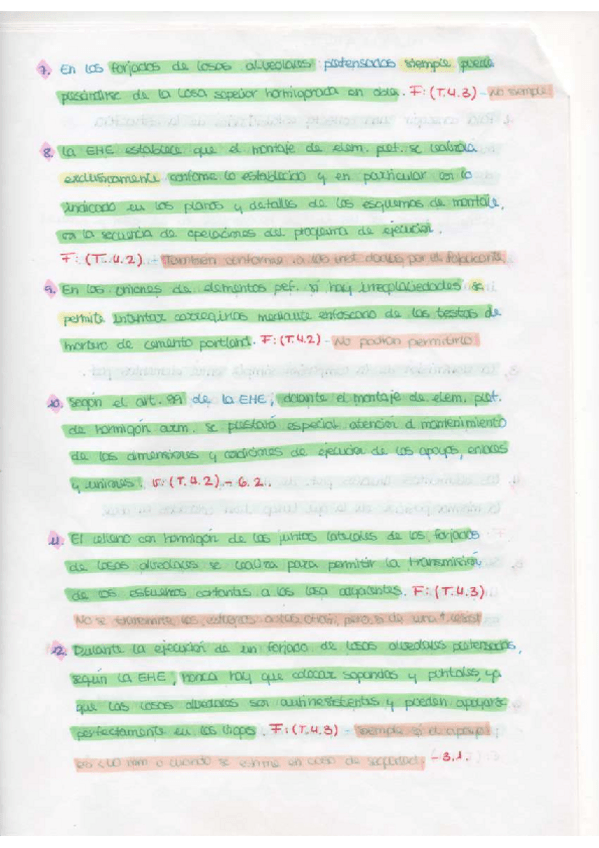 7. En los forjados de losas alveolares pretensadas siempre puede
prescindirse de la losa superior hormigonada en obra. F: (T.4.3) - No siempre
8. La EHE establece que el montaje de elem. pref. se realizará
exclusivamente conforme lo establecido y en particular con lo
indicado en los planos y detalles de los esquemas de montaje,
con la secuencia de operaciones del programa de ejecución.
F: (T.4.2) - También conforme a las inst. dadas por el fabricante
9. En las uniones de elementos pref. si hay irregularidades se
permite intentar corregirlos mediante enfoscado de las testas de
mortero de cemento portland. F: (T.4.2) - No podrán permitirlo
10. Según el art. 99 de la EHE, durante el montaje de elem. pref.
de hormigón arm. se prestará especial atención al mantenimiento
de las dimensiones y condiciones de ejecución de los apoyos, enlaces
y uniones. V: (T.4.2) - 6.2.
11. El relleno con hormigón de las juntas laterales de los forjados
de losas alveolares se realiza para permitir la transmisión
de los esfuerzos cortantes a las losa adyacentes. F: (T.4.3)
No se transmite los
12. Durante la ejecución de un forjado de losas alveolares pretensadas,
según la EHE, nunca hay que colocar sopandas y puntales, ya
que las losas alveolares son autorresistentes y pueden apoyarse
perfectamente en las vigas. F: (T.4.3) - siempre si el apoyo
es < 40 mm o cuando se estime en caso de seguridad. - 3.1.